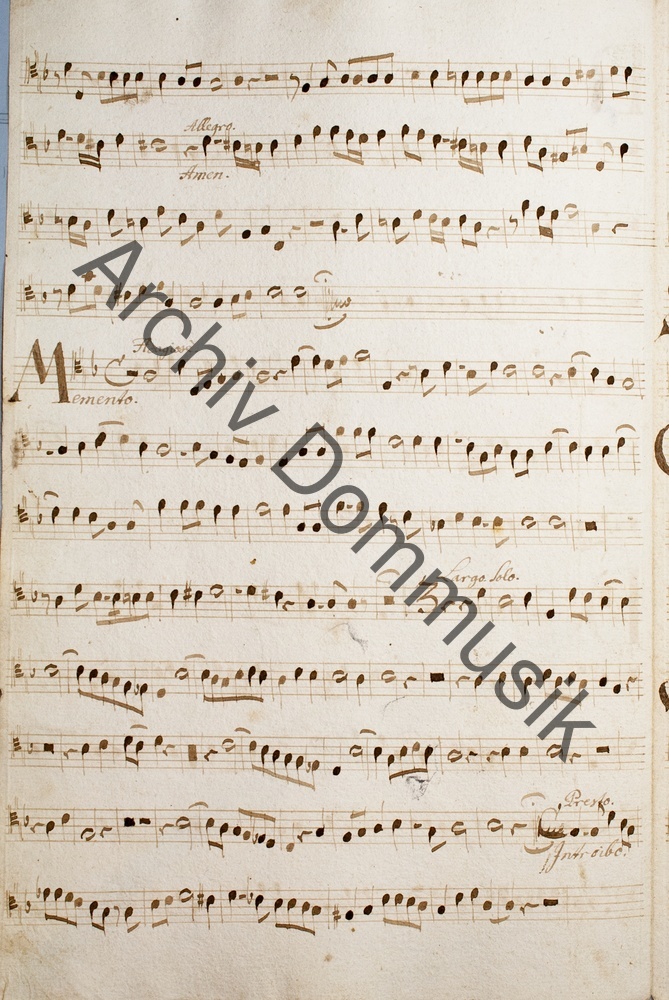 Allegro.
Amen.
Memento.
Largo. Solo.
Presto.
Introibo.
Archiv Dommusik